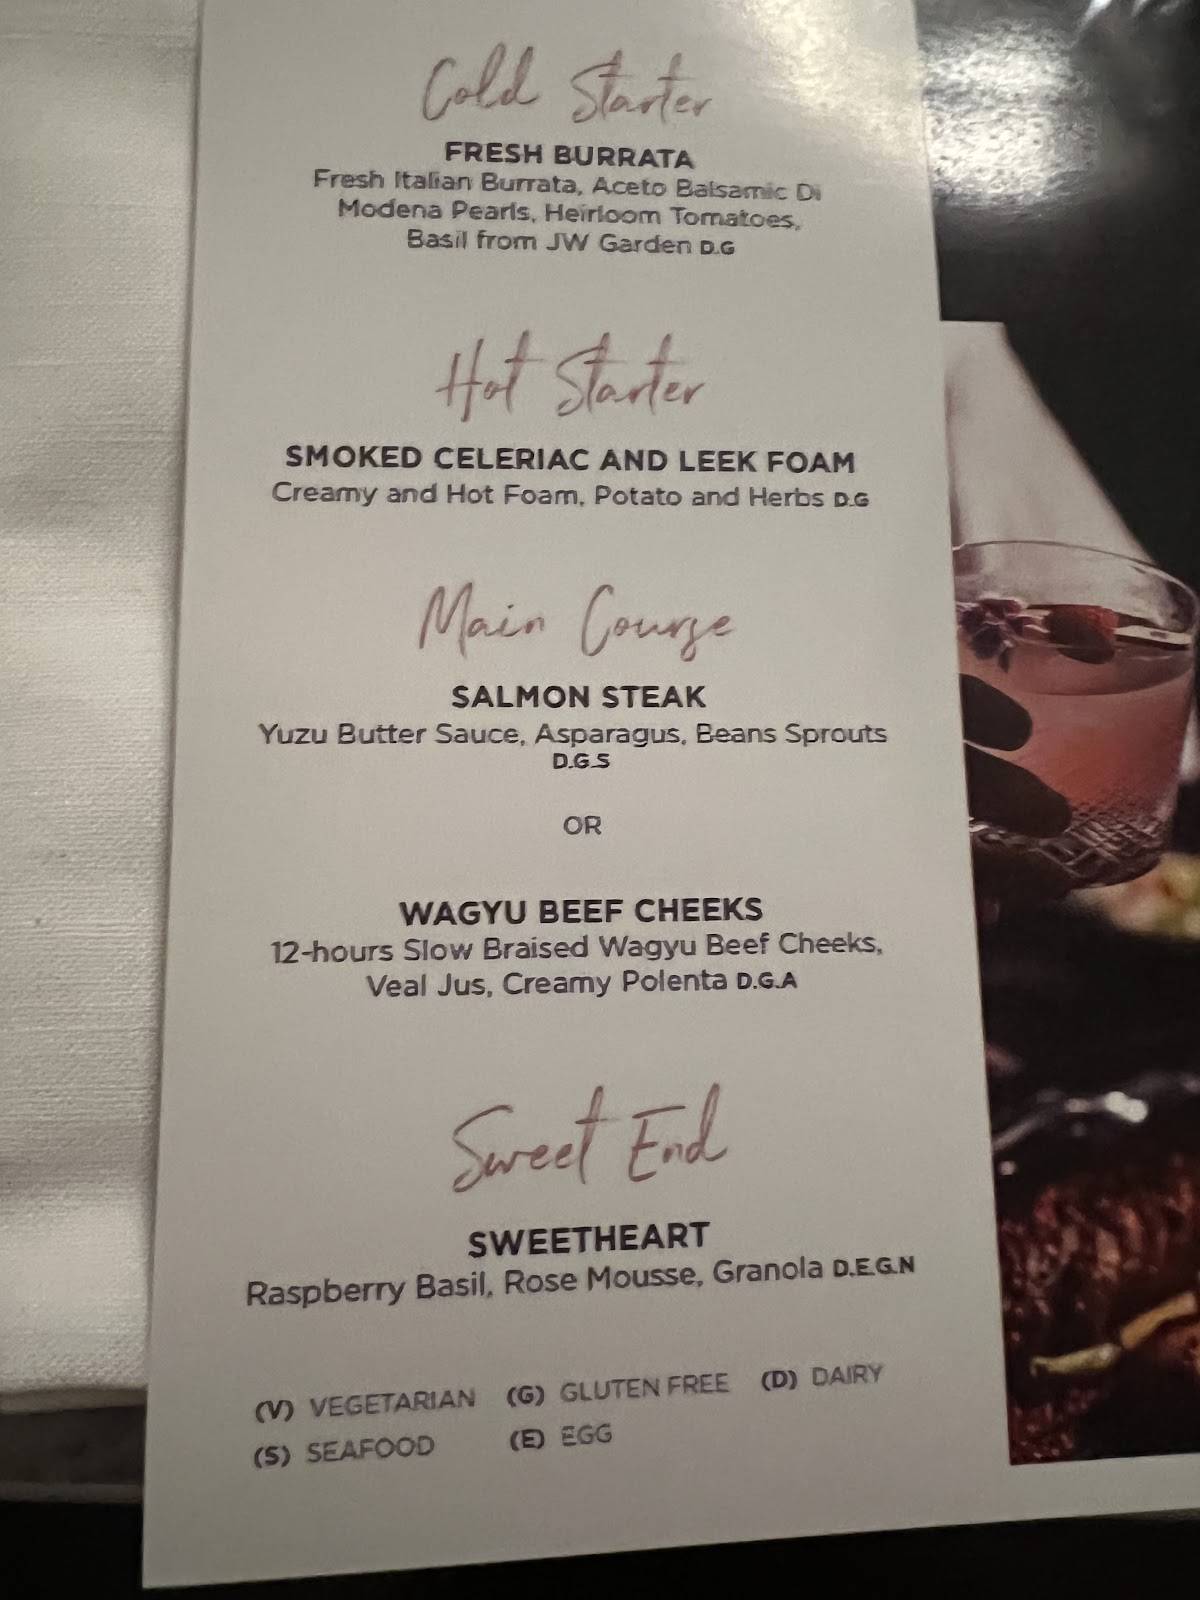 Cold Starter
FRESH BURRATA
Fresh Italian Burrata, Aceto Balsamic Di
Modena Pearls, Heirloom Tomatoes,
Basil from JW Garden D.G
Hot Starter
SMOKED CELERIAC AND LEEK FOAM
Creamy and Hot Foam, Potato and Herbs D.G
Main Course
SALMON STEAK
Yuzu Butter Sauce, Asparagus, Beans Sprouts
D.G.S
OR
WAGYU BEEF CHEEKS
12-hours Slow Braised Wagyu Beef Cheeks,
Veal Jus, Creamy Polenta D.G.A
Sweet End
SWEETHEART
Raspberry Basil, Rose Mousse, Granola D.E.G.N
(V) VEGETARIAN (G) GLUTEN FREE (D) DAIRY
(S) SEAFOOD (E) EGG